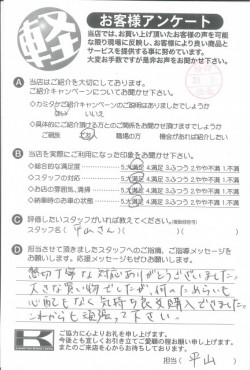 軽
お客様アンケート
当店では、お買い上げ頂いたお客様の声を可能
な限り現場に反映し、お客様により良い商品と
サービスを提供する事に努めています。
大変お手数ですが是非お声をお聞かせ下さい。
A 当店はご紹介を大切にしております。
ご紹介キャンペーンについてお聞かせ下さい。
◇カミタケご紹介キャンペーンのご説明はありましたでしょうか
はい いいえ
◇具体的にご紹介頂ける方とのご関係をお聞かせ頂けますでしょうか
ご親族 ご友人 職場の方 機会があれば紹介したい
B 当店を実際にご利用になった印象をお聞かせ下さい。
◇総合的な満足度 5.大満足 4.満足 3.ふつう 2.やや不満 1.不満
◇スタッフの対応 5.大満足 4.満足 3.ふつう 2.やや不満 1.不満
◇お店の雰囲気、清掃 5.大満足 4.満足 3.ふつう 2.やや不満 1.不満
◇納車時のお車の状態 5.大満足 4.満足 3.ふつう 2.やや不満 1.不満
C 評価したいスタッフがいれば教えてください。(複数回答可)
スタッフ名( 平山さん )( )
D 担当させて頂きましたスタッフへのご指摘、ご指導メッセージを
お願いします。応援メッセージもぜひお願いします。
親切丁寧な対応ありがとうございました。
大きな買い物でしたが、何のためらいも
心配もなく気持ち良く購入できました。
これからも頑張って下さい。
ご協力に心よりお礼を申し上げます。
今後とも宜しくお引き立てご愛顧の程お願い申し上げます。
またのご来店を心からお待ちしております。
担当( 平山 )